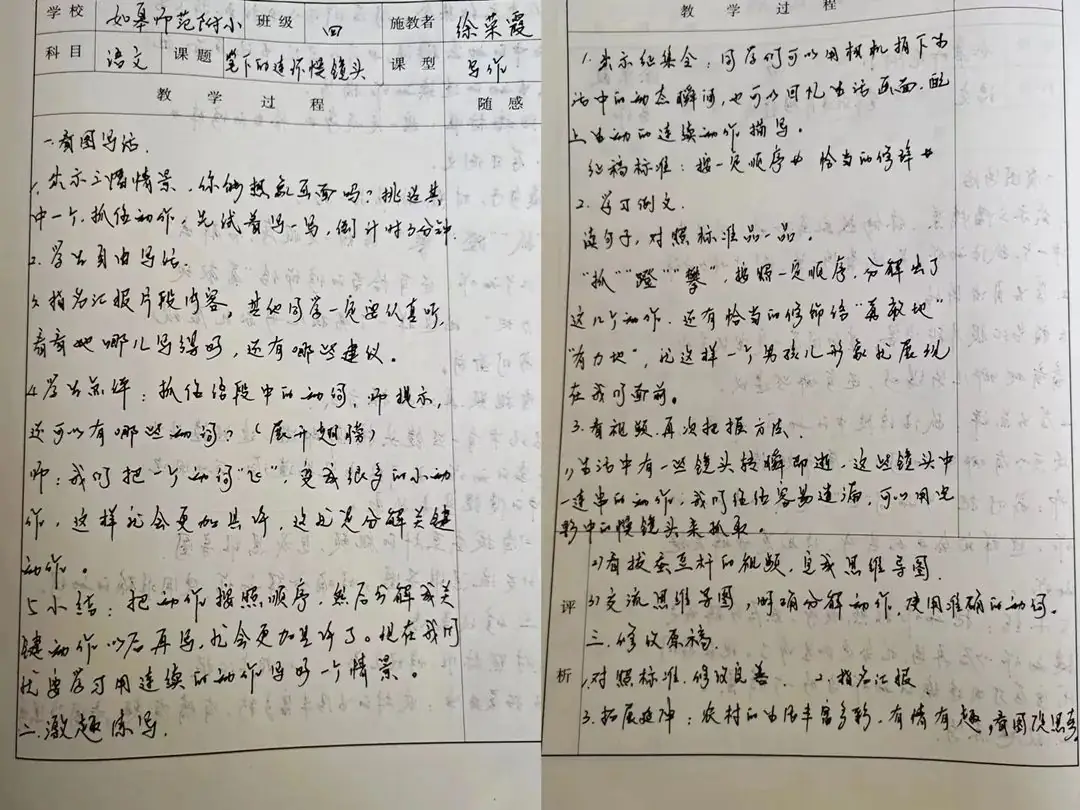 学校 如皋师范附小 班级 四 施教者 徐荣霞
科目 语文 课题 笔下的连环慢镜头 课型 写作
教学过程 随感
一.看图写话.
1.出示三幅情景,你能想象画面吗?挑选其
中一个,抓住动作,先试着写一写,倒计时5分钟.
2.学生自由写话.
3.指名汇报片段内容,其他同学一定要认真听,
看看她哪儿写得好,还有哪些建议。
4.学生点评:抓住片段中的动词,师提示,
还可以有哪些动词?(展开翅膀)
师:我们把一个动词“飞”,变成很多的小动
作,这样就会更加具体,这就是分解关键
动作。
5.小结:把动作按照顺序,然后分解成关
键动作以后再写,就会更加具体了。现在我们
就要学习用连续的动作写好一个情景。
二.激趣练写.
教学过程
1.出示征集令:同学们可以用相机拍下生
活中的动态瞬间,也可以回忆生活画面,配
上生动的连续动作描写。
征稿标准:按一定顺序 恰当的修辞
2.学习例文.
读句子,对照标准品一品。
“抓”“蹬”“攀”,按照一定顺序,分解出了
这几个动作.还有恰当的修饰语“勇敢地”
“有力地”,就这样一个男孩儿形象就展现
在我们面前。
3.看视频,再次把握方法.
1)生活中有一些镜头转瞬即逝,这些镜头中
一连串的动作,我们往往容易遗漏,可以用电
影中的慢镜头来抓取。
2)看拔蚕豆秆的视频,完成思维导图.
评 3)交流思维导图,明确分解动作,使用准确的动词.
三.修改原稿.
析 1.对照标准,修改完善. 2.指名汇报
3.拓展延伸:农村的生活丰富多彩,有情有趣,